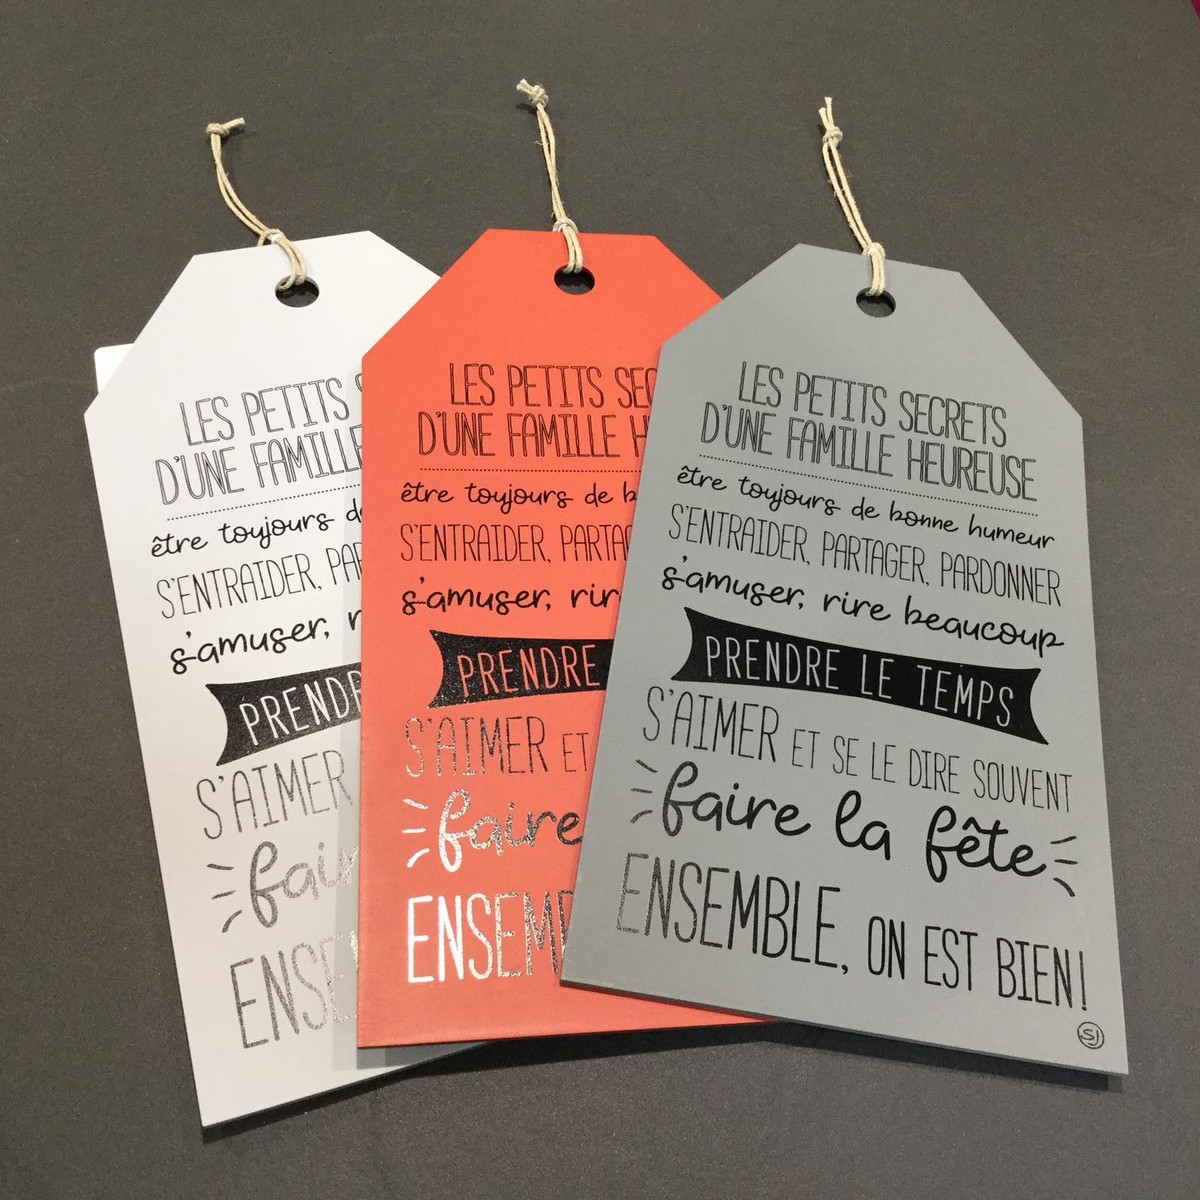 LES PETITS
D'UNE FAMILLE
être toujours
S'ENTRAIDER,
s'amuser,
S'AIMER
LES PETITS
D'UNE FAMILLE
être toujours de
S'ENTRAIDER,
s'amuser,
PRENDRE
S'AIMER ET
faire
LES PETITS SECRETS
D'UNE FAMILLE HEUREUSE
être toujours de bonne humeur
S'ENTRAIDER, PARTAGER, PARDONNER
s'amuser, rire beaucoup
PRENDRE LE TEMPS
S'AIMER ET SE LE DIRE SOUVENT
faire la fête
ENSEMBLE, ON EST BIEN!
SJ